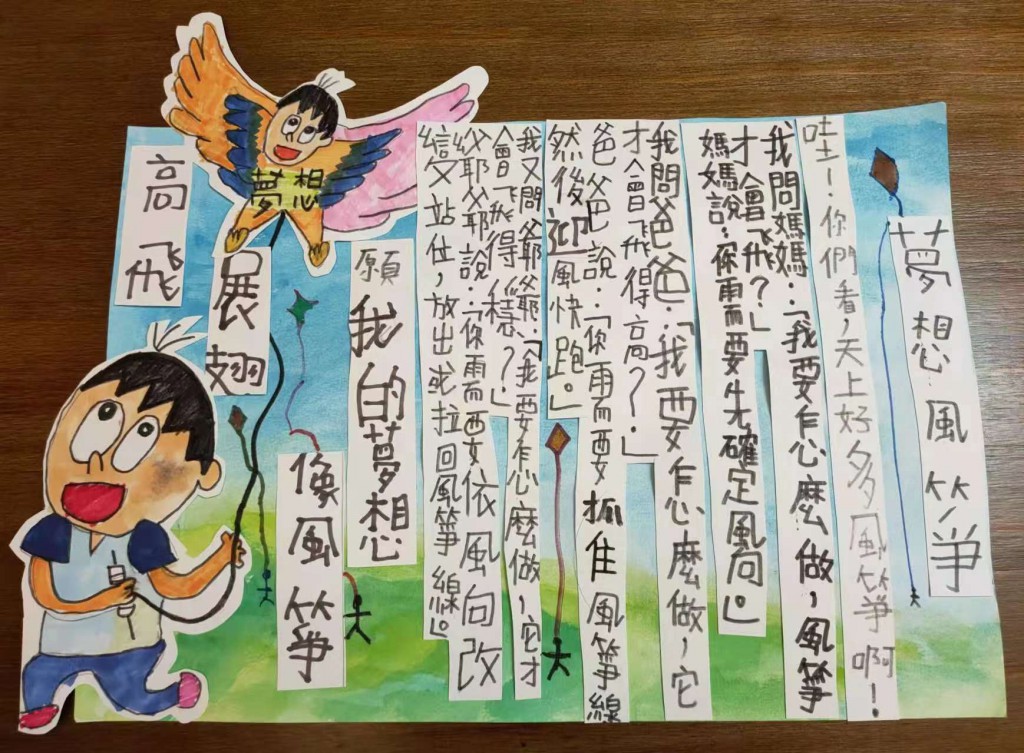 夢想風箏
哇！你們看，天上好多風箏啊！
我問媽媽：「我要怎麼做，風箏
才會飛？」
媽媽說：你需要先確定風向。」
我問爸爸：「我要怎麼做，它
才會飛得高？」
爸爸說：「你需要抓住風箏線
然後迎風快跑。」
我又問爺爺：「我要怎麼做，它才
會飛得穩？」
爺爺說：「你需要依風向改
變站位，放出或拉回風箏線。」
願我的夢想
像風箏
展翅
高飛
夢想